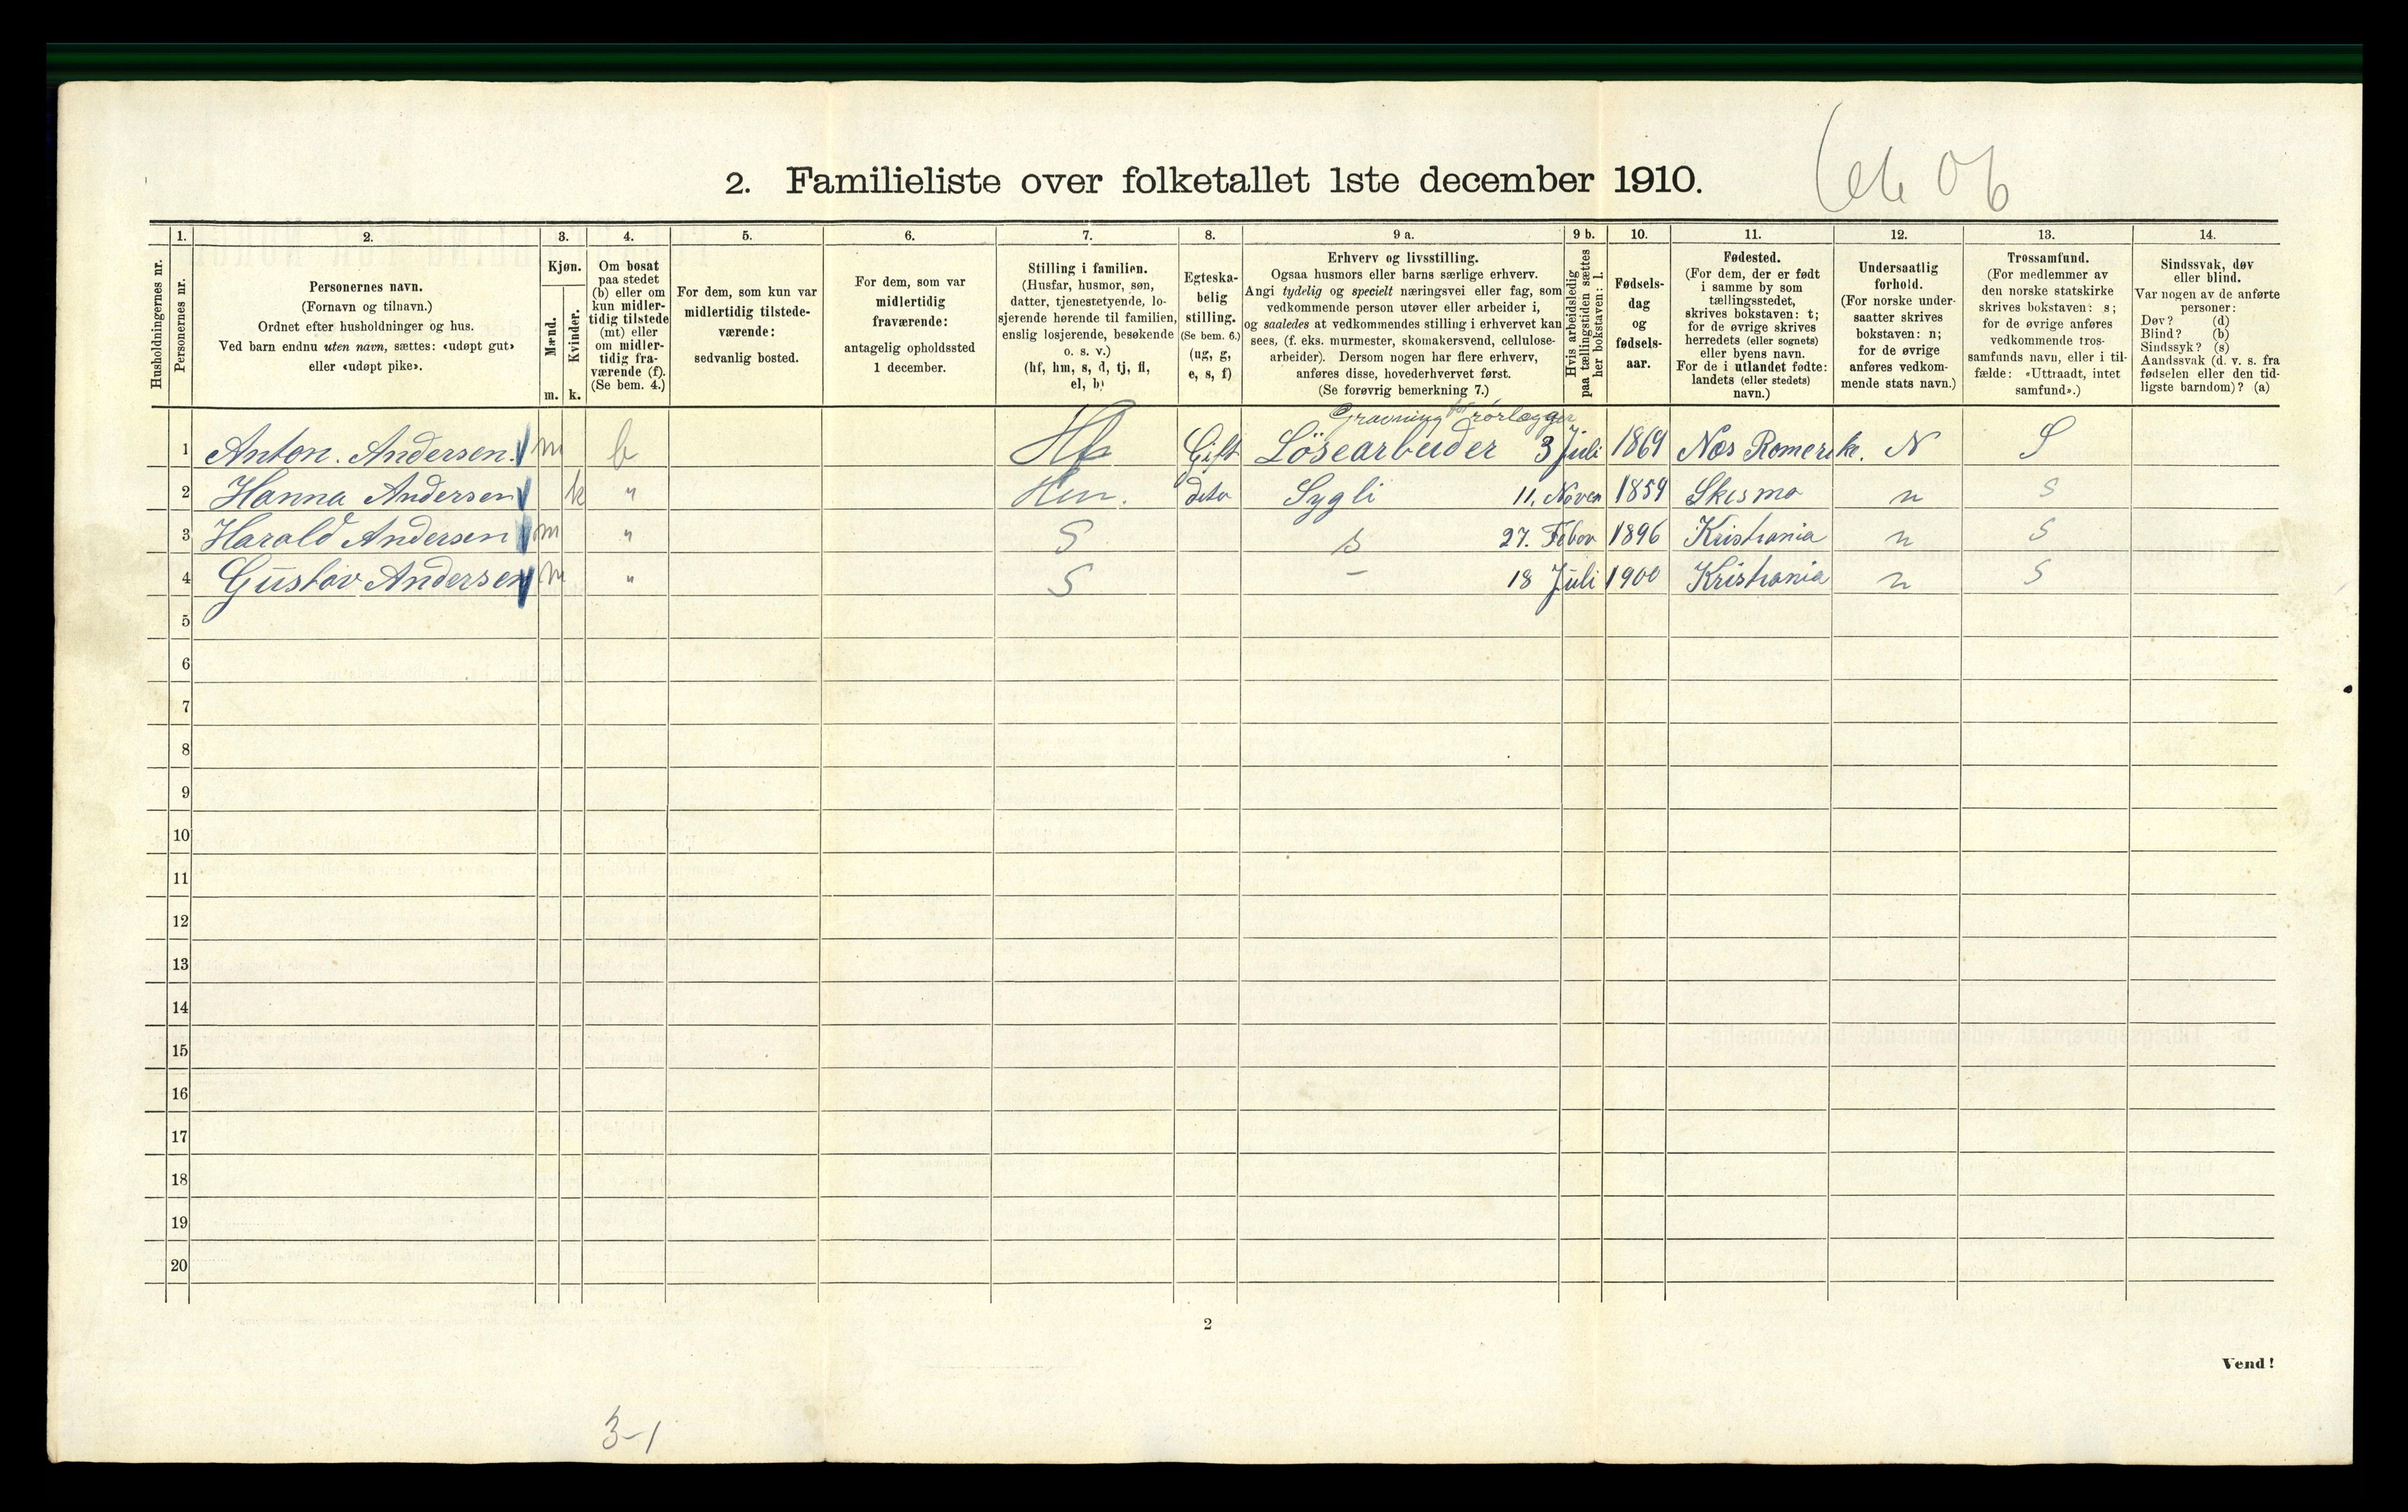 2. Familieliste over folketallet 1ste december 1910.
Husholdningernes nr.
1.
Personernes nr.
2.
Personernes navn.
(Fornavn og tilnavn.)
Ordnet efter husholdninger og hus.
Ved barn endnu uten navn, sættes: «udøpt gut»
eller «udøpt pike».
3.
Kjøn.
Mænd.
m.
Kvinder.
k.
4.
Om bosat
paa stedet
(b) eller om
kun midler-
tidig tilstede
(mt) eller
om midler-
tidig fra-
værende (f).
(Se bem. 4.)
5.
For dem, som kun var
midlertidig tilstede-
værende:
sedvanlig bosted.
6.
For dem, som var
midlertidig
fraværende:
antagelig opholdssted
1 december.
7.
Stilling i familien.
(Husfar, husmor, søn,
datter, tjenestetyende, lo-
sjerende hørende til familien,
enslig losjerende, besøkende
o. s. v.)
(hf, hm, s, d, tj, fl,
el, b)
8.
Egteska-
belig
stilling.
(Se bem. 6.)
(ug, g,
e, s, f)
9 a.
Erhverv og livsstilling.
Ogsaa husmors eller barns særlige erhverv.
Angi tydelig og specielt næringsvei eller fag, som
vedkommende person utøver eller arbeider i,
og saaledes at vedkommendes stilling i erhvervet kan
sees, (f. eks. murmester, skomakersvend, cellulose-
arbeider). Dersom nogen har flere erhverv,
anføres disse, hovederhvervet først.
(Se forøvrig bemerkning 7.)
9 b.
Hvis arbeidsledig
paa tællingstiden sættes
her bokstaven: l.
10.
Fødsels-
dag
og
fødsels-
aar.
11.
Fødested.
(For dem, der er født
i samme by som
tællingsstedet,
skrives bokstaven: t;
for de øvrige skrives
herredets (eller sognets)
eller byens navn.
For de i utlandet fødte:
landets (eller stedets)
navn.)
12.
Undersaatlig
forhold.
(For norske under-
saatter skrives
bokstaven: n;
for de øvrige
anføres vedkom-
mende stats navn.)
13.
Trossamfund.
(For medlemmer av
den norske statskirke
skrives bokstaven: s;
for de øvrige anføres
vedkommende tros-
samfunds navn, eller i til-
fælde: «Uttraadt, intet
samfund».)
14.
Sindssvak, døv
eller blind.
Var nogen av de anførte
personer:
Døv? (d)
Blind? (b)
Sindssyk? (s)
Aandssvak (d. v. s. fra
fødselen eller den tid-
ligste barndom)? (a)
Gravning for rørlægger
1 Anton. Andersen. m b Hf Gift Lösearbuider 3 Juli 1869 Næs Romerik. N S
2 Hanna Andersen k " Hm. dito Sygli 11. Novem 1859 Skesmo n S
3 Harald Andersen m " S s 27. Febor 1896 Kristiania n S
4 Gustav Andersen m " S – 18 Juli 1900 Kristiania n S
5
6
7
8
9
10
11
12
13
14
15
16
17
18
19
20
2
Vend!
3-1